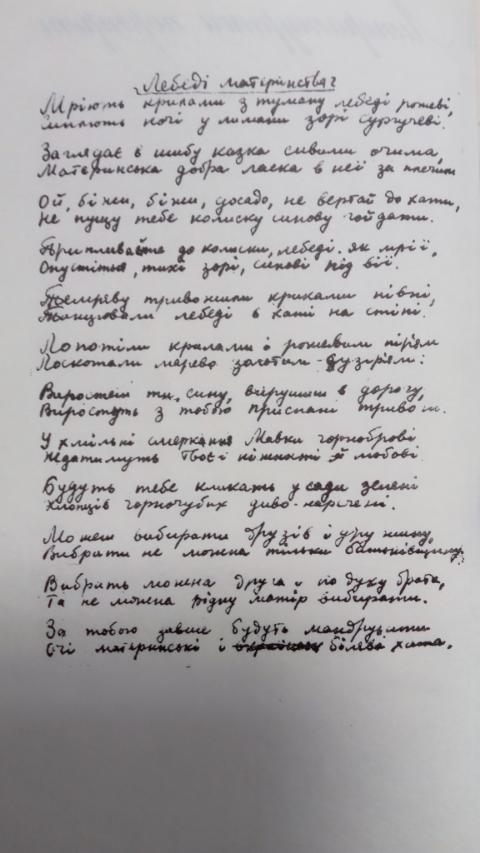 Лебеді материнства
Мріють крилами з туману лебеді рожеві,
Сиплють ночі у лимани зорі сургучеві.
Заглядає в шибу казка сивими очима,
Материнська добра ласка в неї за плечима
Ой, біжи, біжи, досадо, не вертай до хати,
Не пущу тебе колиску синову гойдати.
Припливайте до колиски, лебеді, як мрії,
Опустіться, тихі зорі, синові під вії.
Темряву тривожили криками півні,
Танцювали лебеді в хаті на стіні.
Лопотіли крилами і рожевим пір'ям
Лоскотали марево золотим сузір'ям.
Виростеш ти, сину, вирушиш в дорогу,
Виростуть з тобою приспані тривоги.
У хмільні смеркання Мавки чорноброві
Ждатимуть твоєї ніжності й любові.
Будуть тебе кликать у сади зелені
Хлопців чорночубих диво-наречені.
Можеш вибирати друзів і дружину,
Вибрати не можна тільки Батьківщину.
Вибрать можна друга і по духу брата,
Та не можна рідну матір вибирати.
За тобою завше будуть мандрувати
Очі материнські і білява хата.